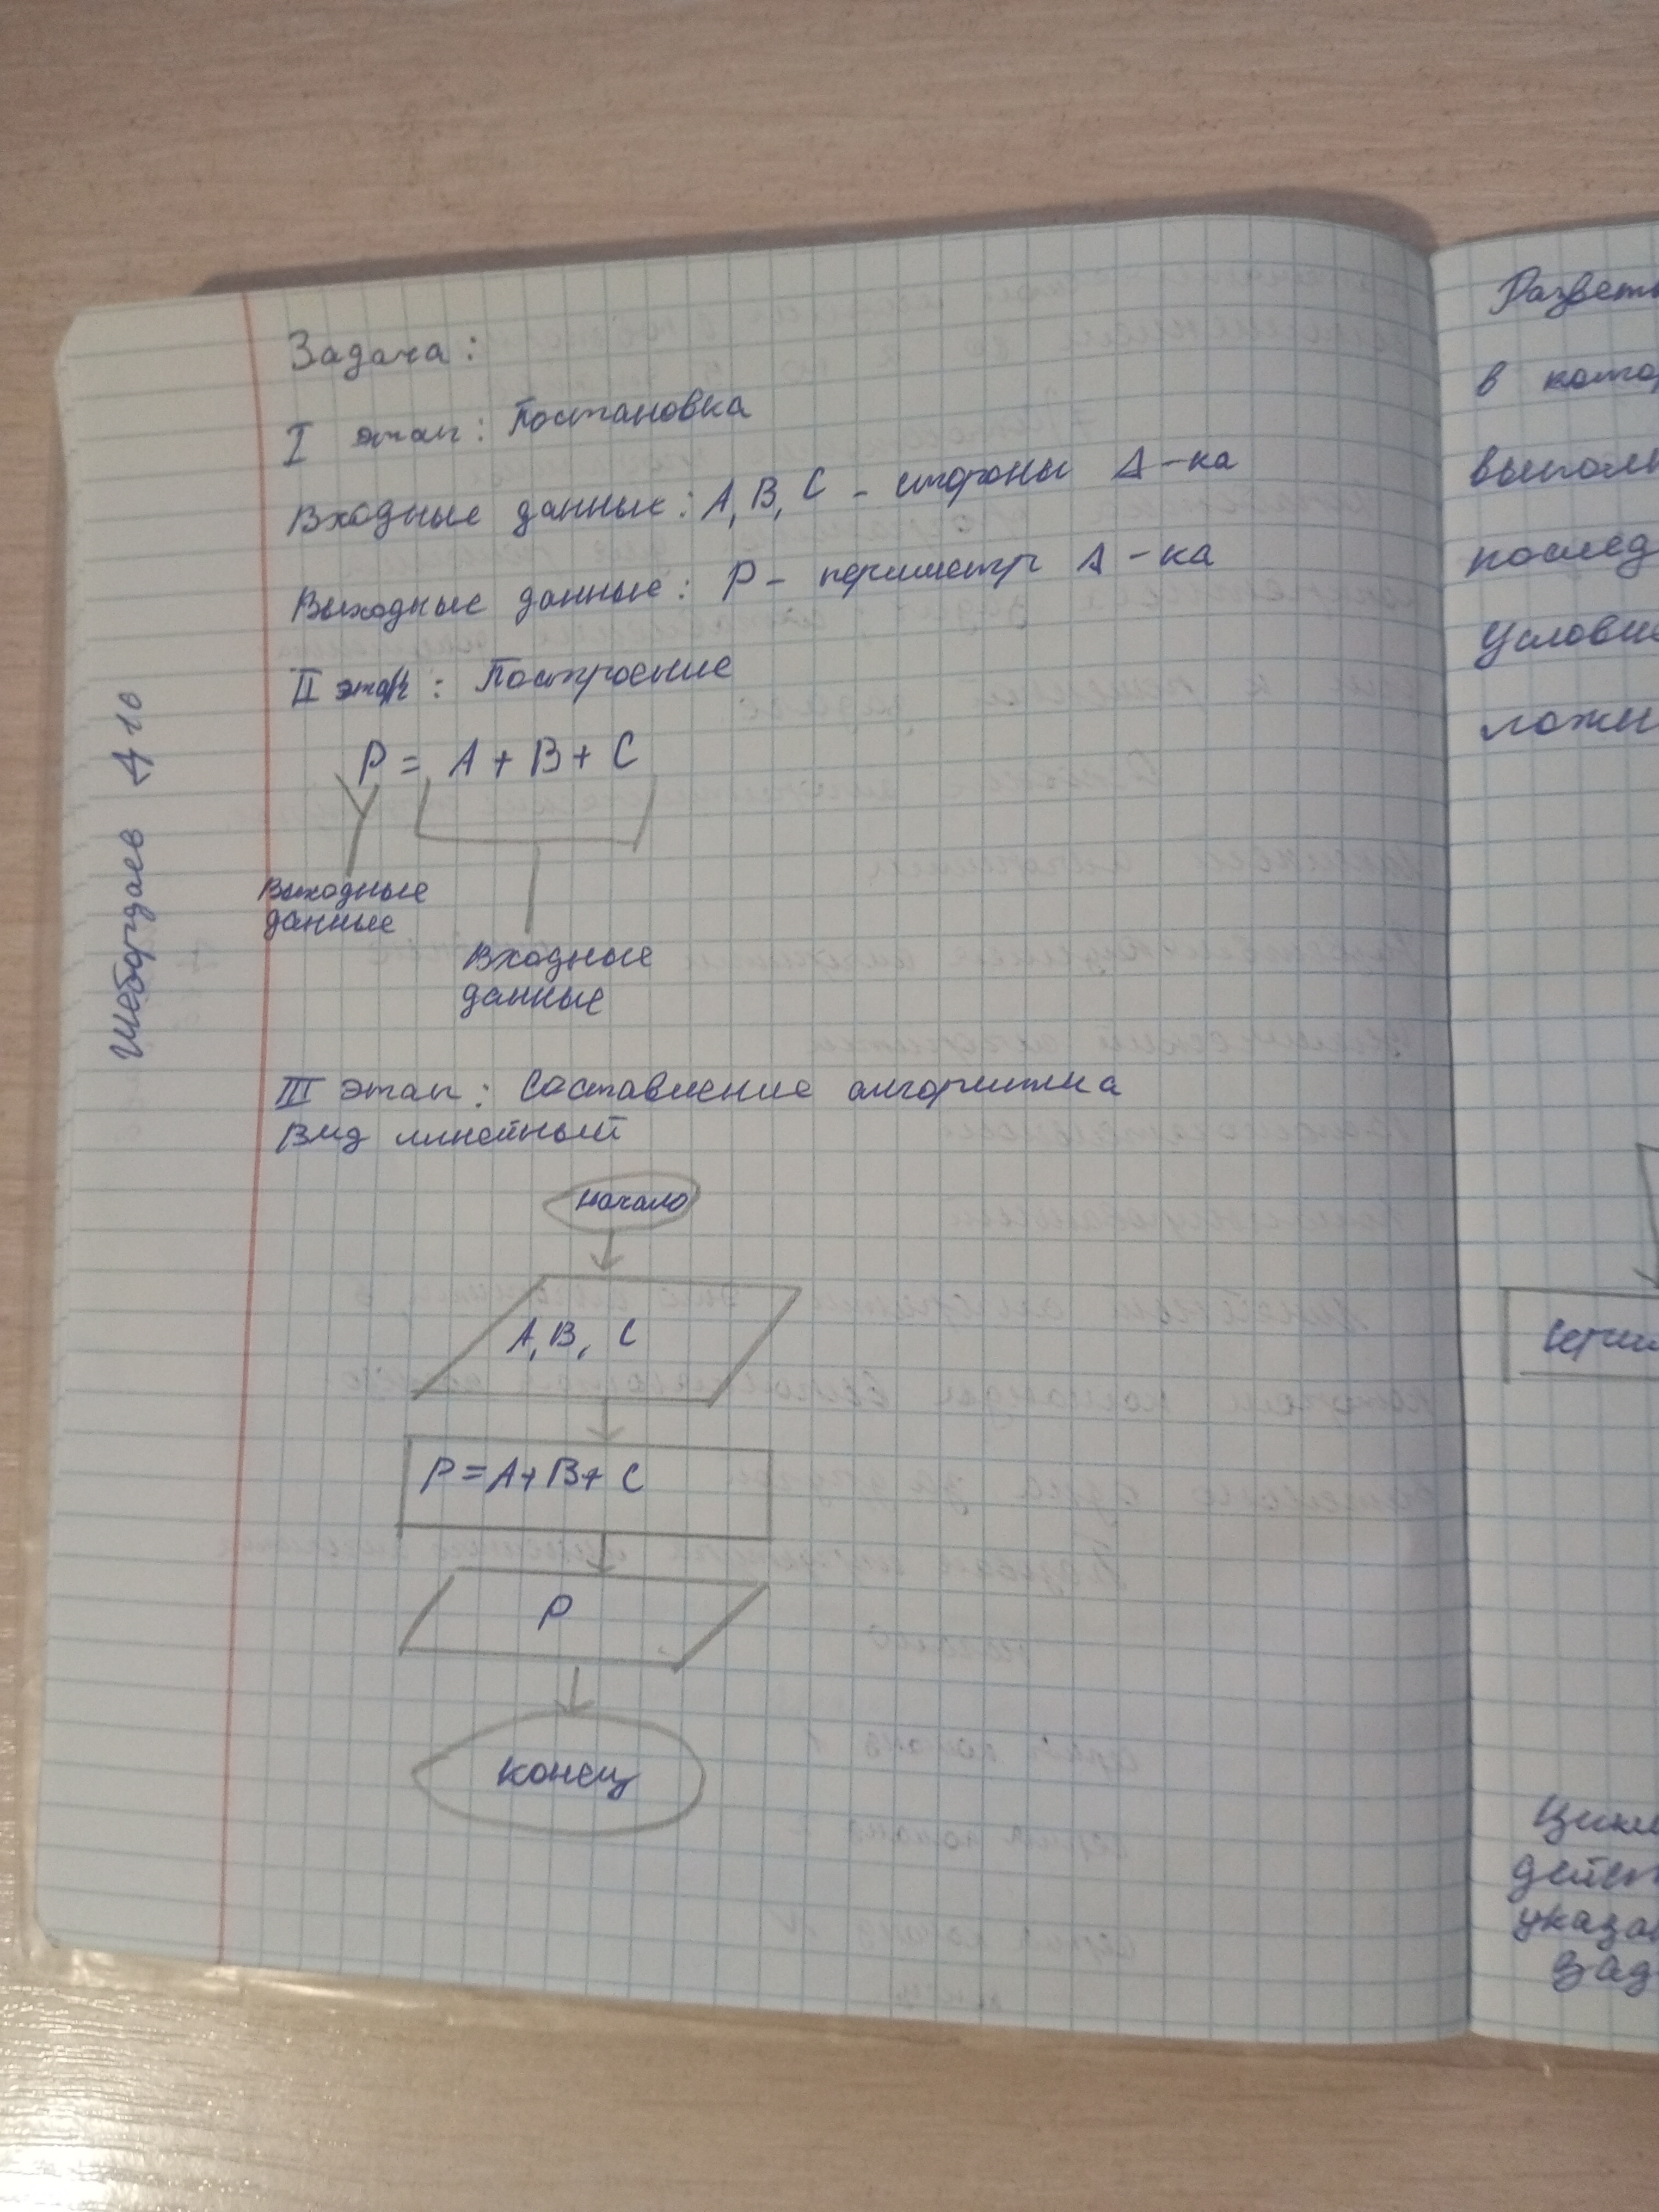 Задача:
I этап: Постановка
Входные данные: A, B, C - стороны Δ-ка
Выходные данные: P - периметр Δ-ка
II этап: Построение
P = A + B + C
Выходные
данные
Входные
данные
III этап: Составление алгоритма
Вид линейный
начало
A, B, C
P = A + B + C
P
конец
Развет
в котор
выполн
послед
условие
ложн
серии
Цикл
дейст
указа
Зад